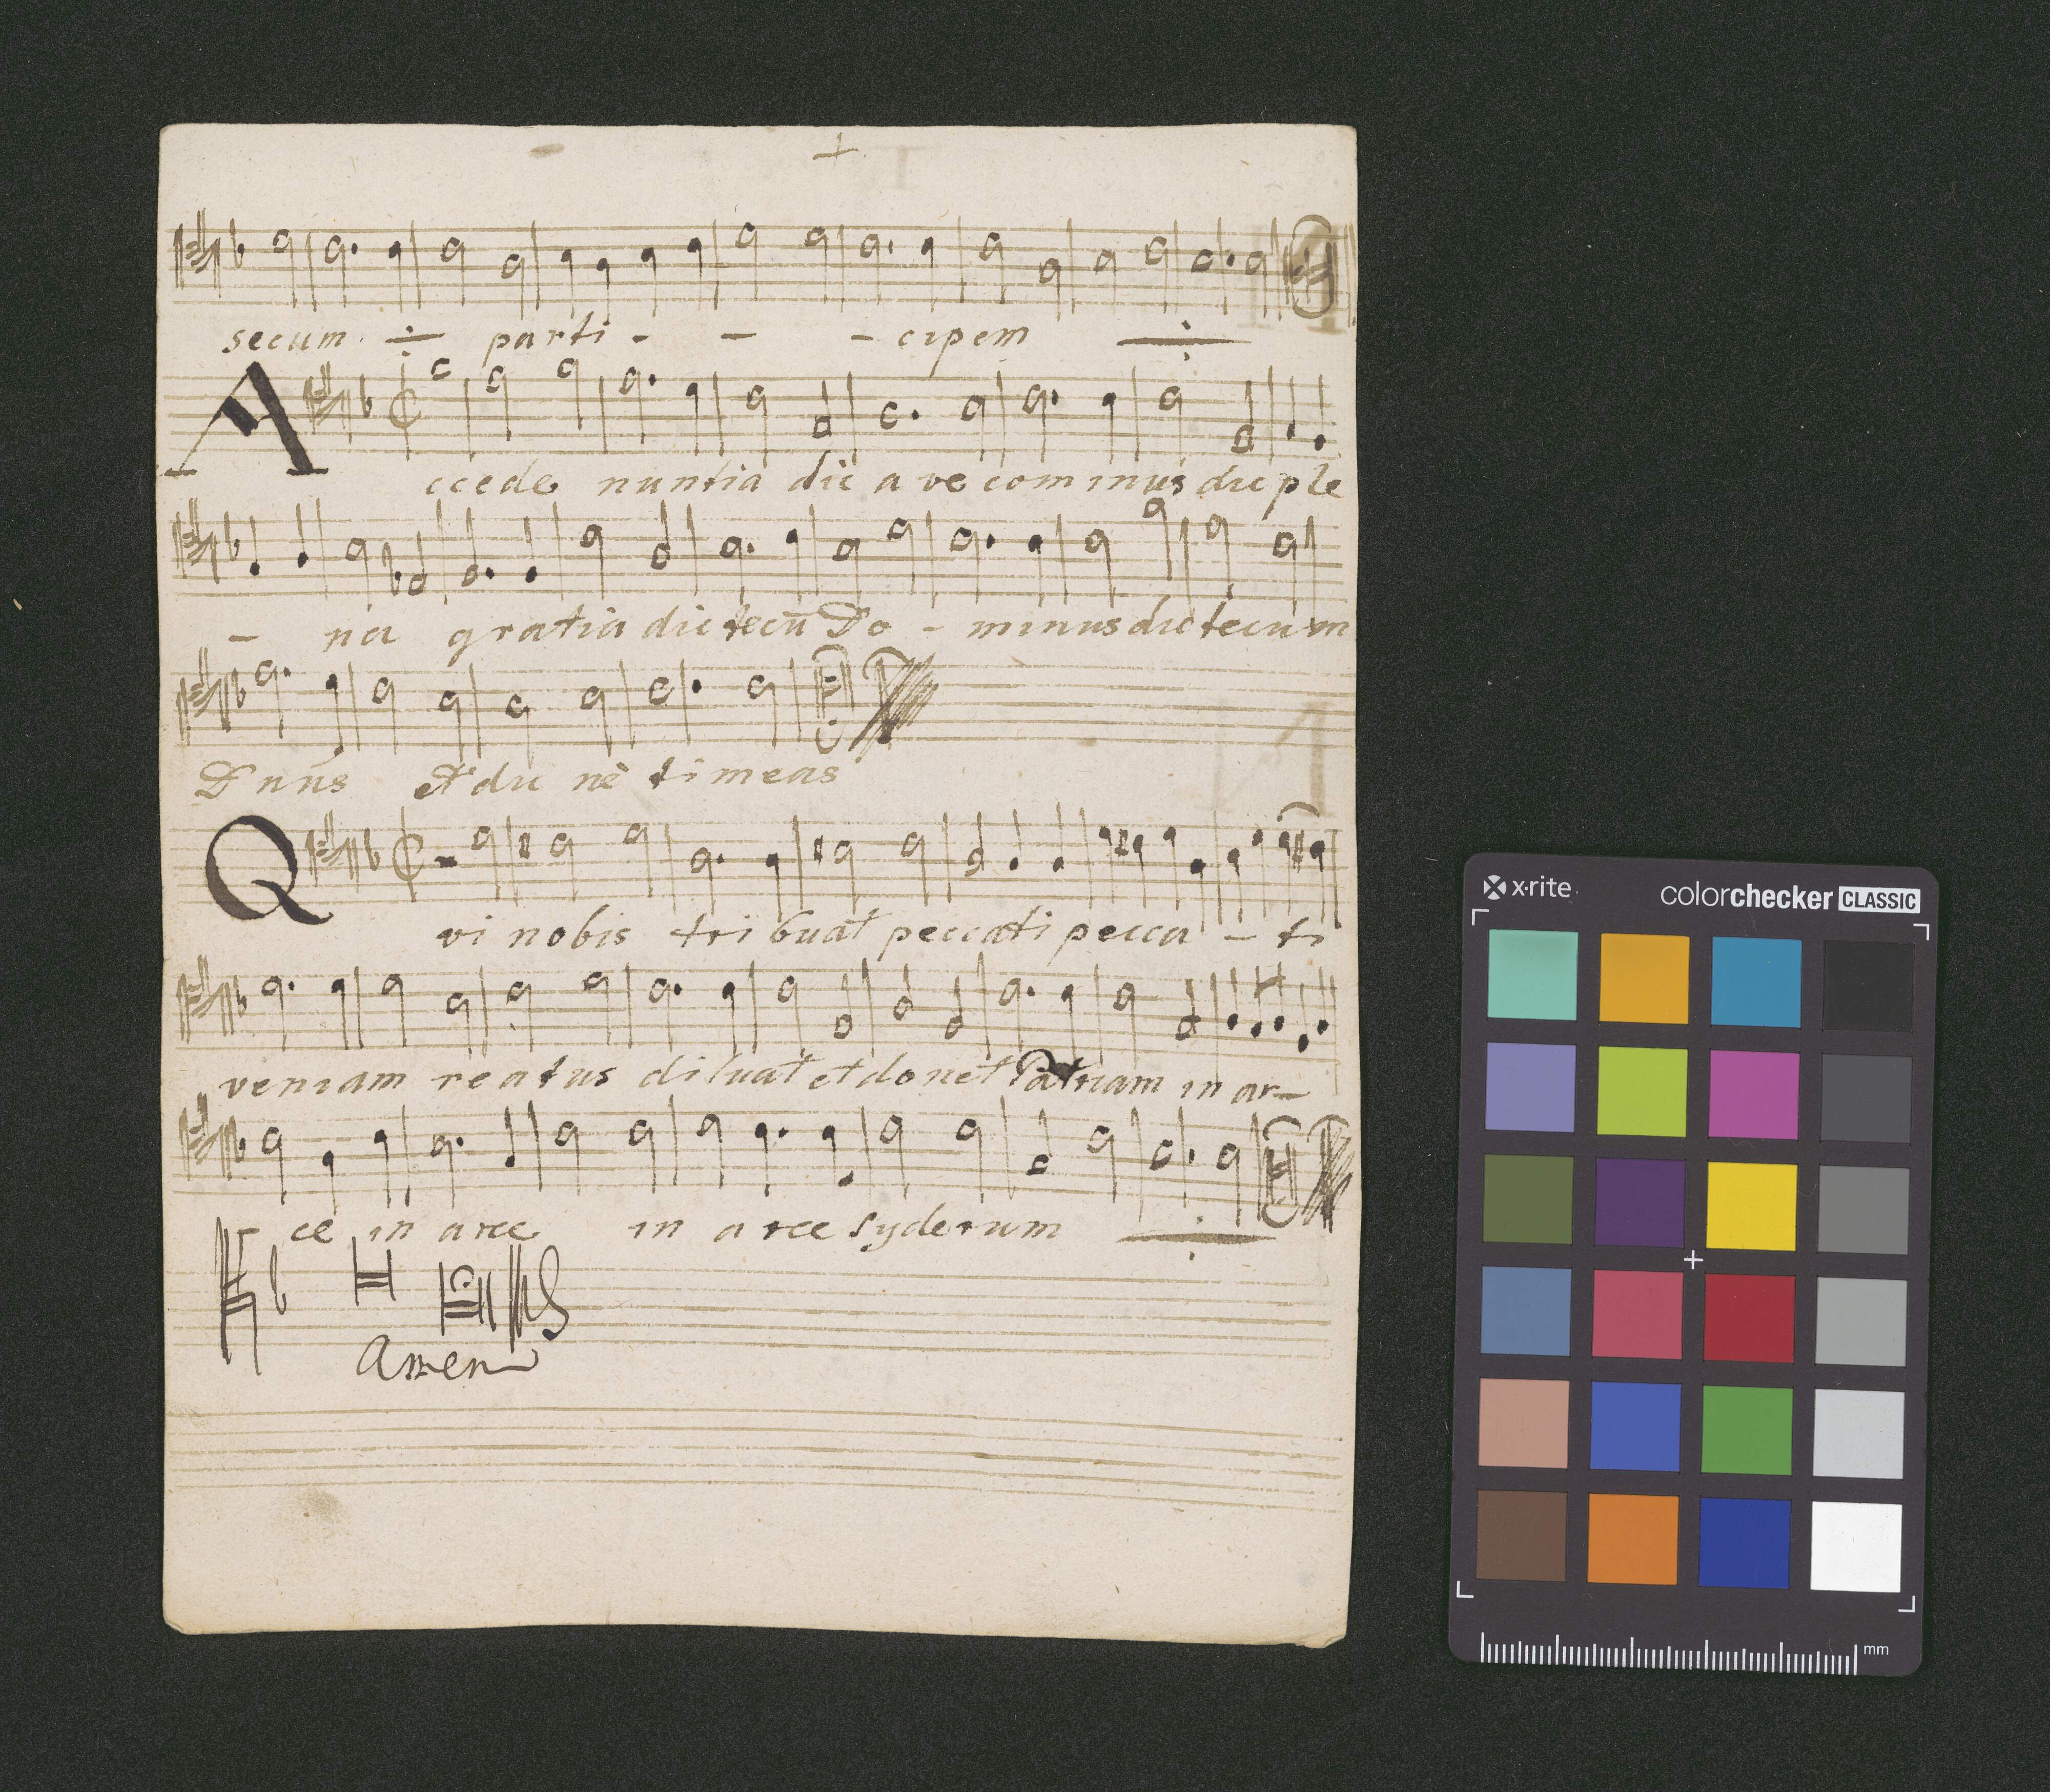 secum parti - - - cipem
Accede nuntia dic ave cominus dic ple
- na gratia dic tecū Do - minus dic tecum
Dnūs et dic nè timeas
Qvi nobis tribuat peccati pecca - ti
veniam reatus diluat et donet Patriam in ar-
ce in arce in arce syderum
Amen
x·rite
colorchecker CLASSIC
mm